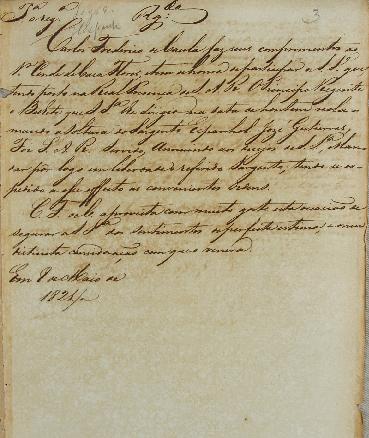 3
Carlos Frederico de Caula faz seus comprimentos ao
Conde de Casa Flores, e tem a honra de participar a S. Sª que
tendo posto na Real Presença de S. A. R. O Principe Regente
o Bilhete que S. Sª lhe dirigio na data de hontem
a soltura do Sargento Espanhol Jozé Gutierres,
Foi S. A. R. Servido, aos rogos de S. Sª, Mandar
por logo em liberdade o referido Sargento, tendo se expedido
a esse effeito as convenientes Ordens.
C. F. de C. aproveita com muito gosto esta occazião de
segurar a S. Sª dos sentimentos de perfeita estima, e
distincta consideração com que o venera.
Em 8 de Maio de
1821